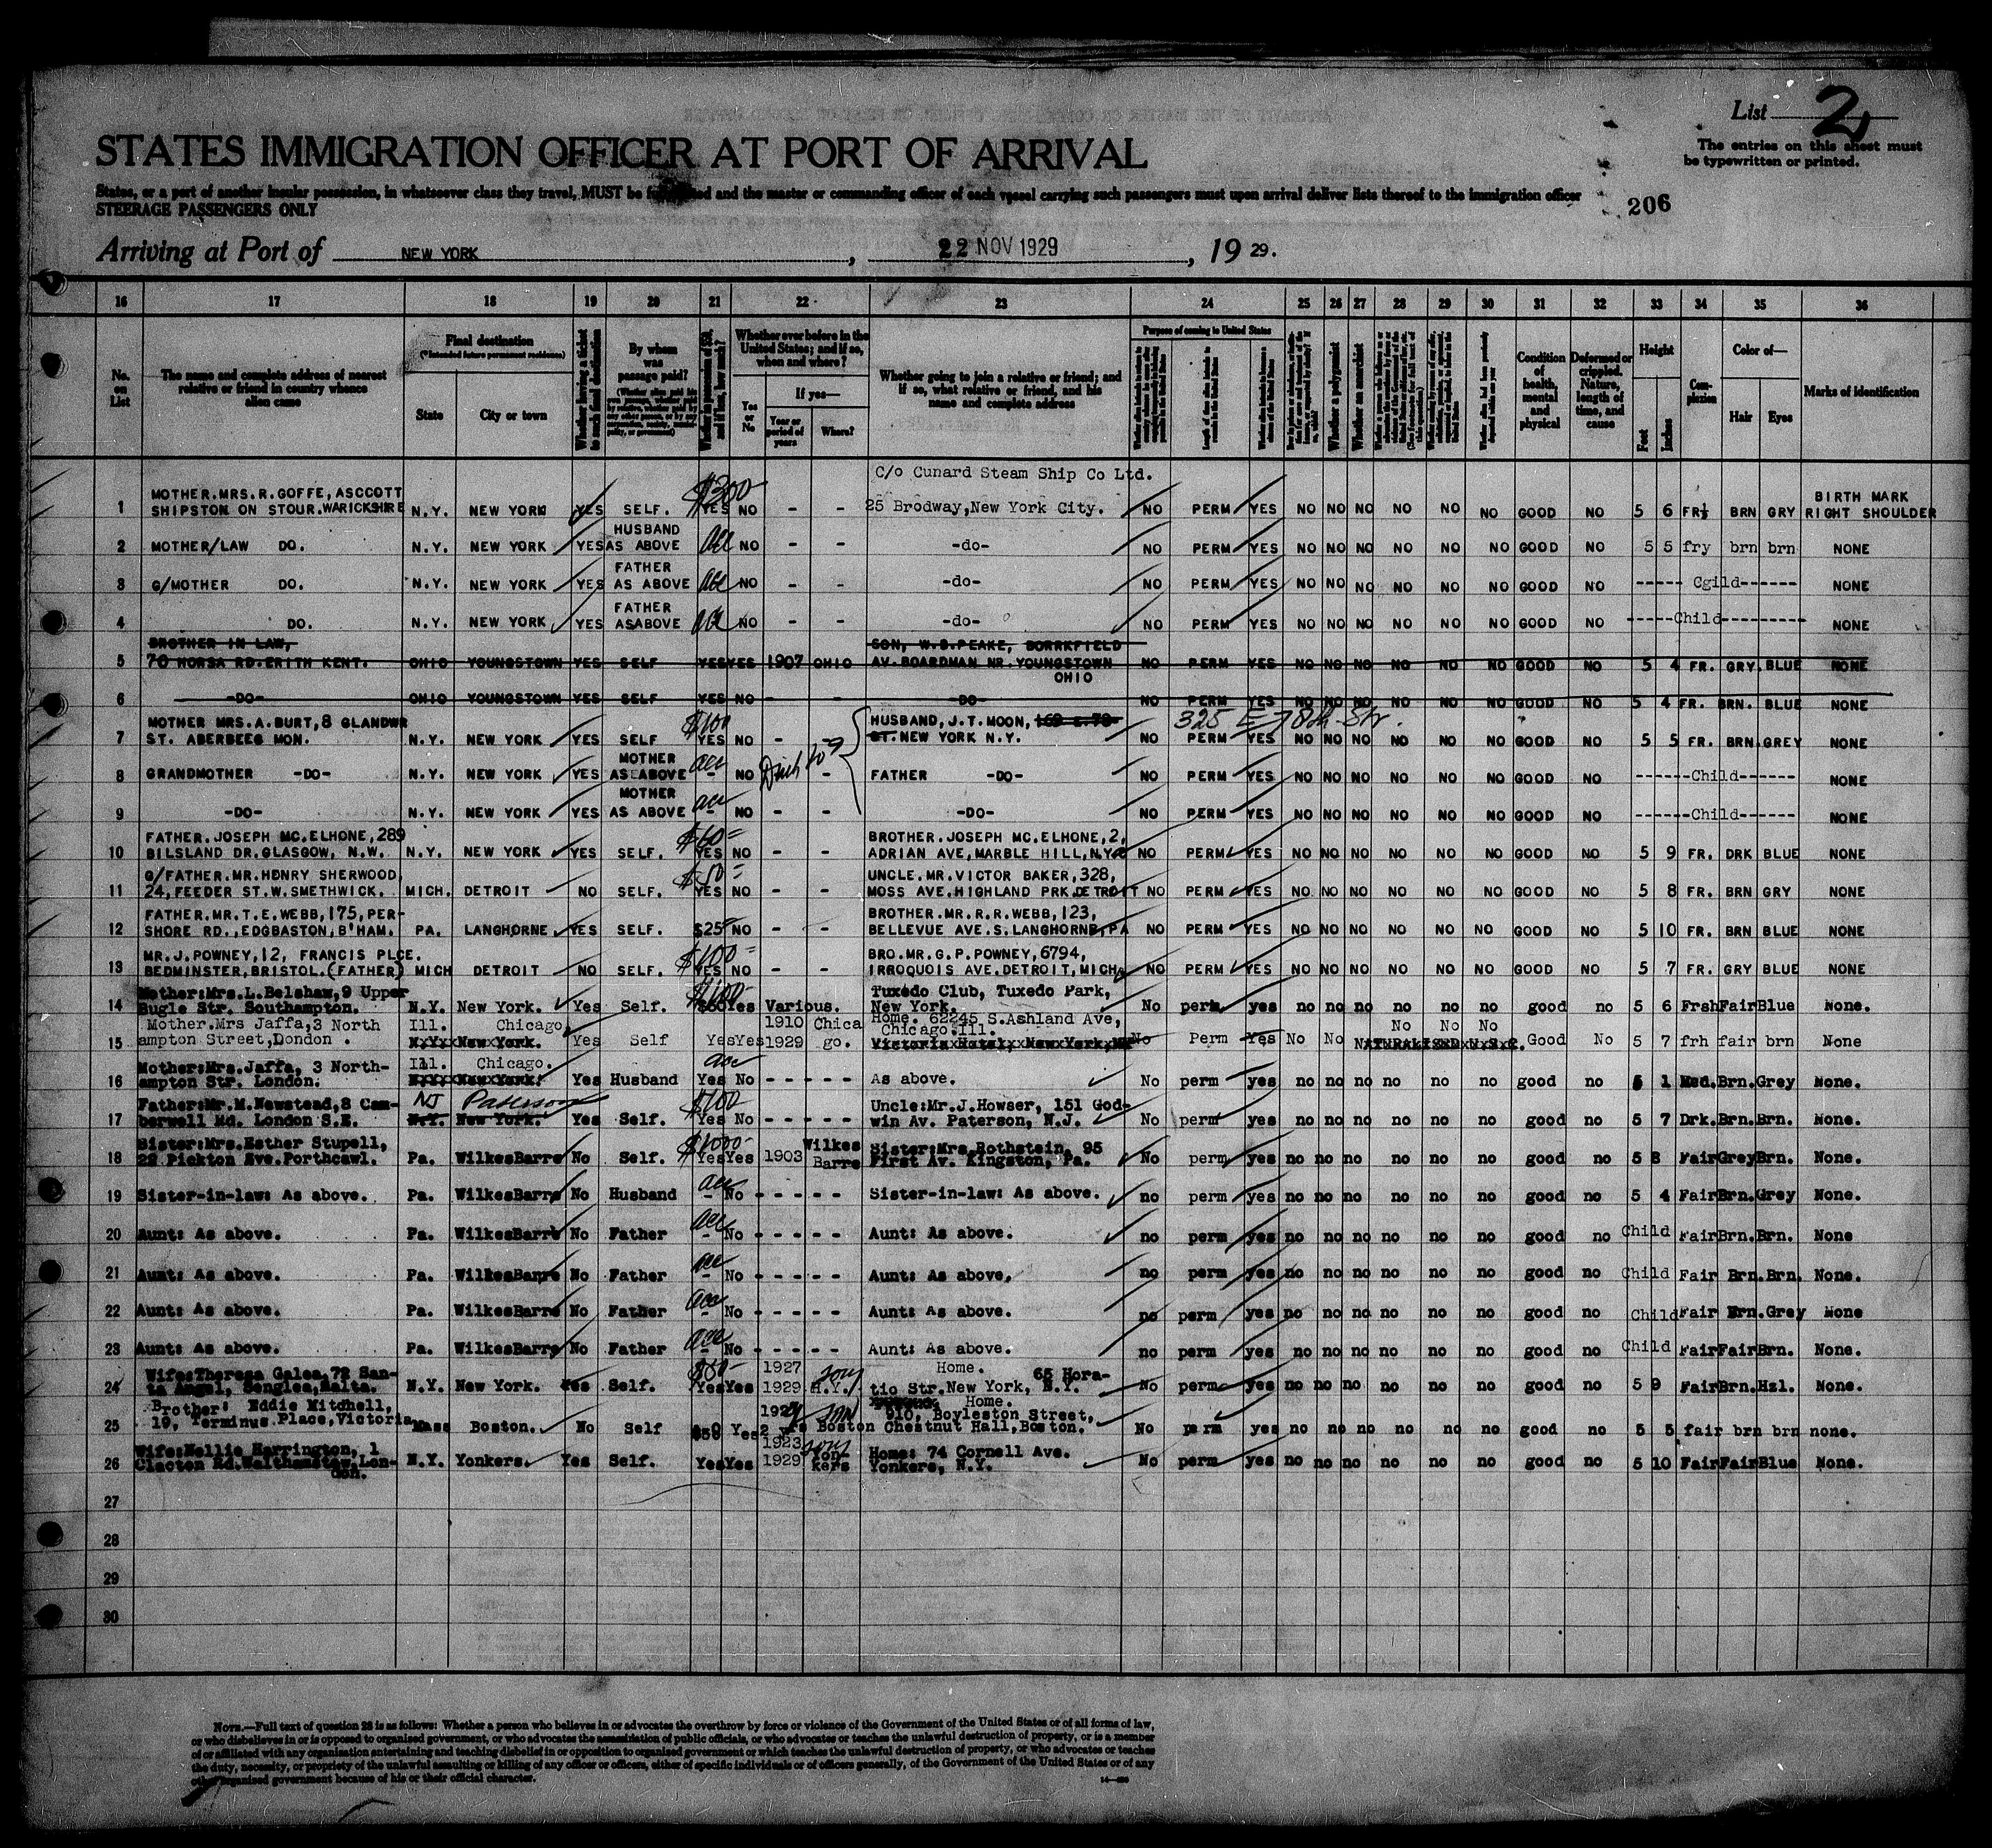 List 2
The entries on this sheet must
be typewritten or printed.
STATES IMMIGRATION OFFICER AT PORT OF ARRIVAL
States, or a port of another insular possession, in whatsoever class they travel, MUST be and the master or commanding officer of each vessel carrying such passengers must upon arrival deliver lists thereof to the immigration officer
STEERAGE PASSENGERS ONLY
206
Arriving at Port of NEW YORK, 22 NOV 1929, 19 29.
16 17 18 19 20 21 22 23 24 25 26 27 28 29 30 31 32 33 34 35 36
No. on List
The name and complete address of nearest relative or friend in country whence alien came
Final destination
(*Intended future permanent residence)
State City or town
Whether having a ticket to such final destination
By whom was passage paid?
Whether ever before in the United States; and if so, when and where?
Yes or No
If yes—
Year or period of years
Where?
Whether going to join a relative or friend; and if so, what relative or friend, and his name and complete address
Purpose of coming to United States
Whether a polygamist
Whether an anarchist
Condition of health, mental and physical
Deformed or crippled. Nature, length of time, and cause
Height
Feet Inches
Complexion
Color of—
Hair Eyes
Marks of identification
C/o Cunard Steam Ship Co Ltd.
MOTHER.MRS.R.GOFFE,ASCCOTT $300 BIRTH MARK
1 SHIPSTON ON STOUR.WARICKSHIRE N.Y. NEW YORK YES SELF. YES NO - - 25 Brodway,New York City. NO PERM YES NO NO NO NO NO NO GOOD NO 5 6 BRN GRY RIGHT SHOULDER
HUSBAND
2 MOTHER/LAW DO. N.Y. NEW YORK YES AS ABOVE NO - - -do- NO PERM YES NO NO NO NO NO NO GOOD NO 5 5 fry brn brn NONE
FATHER
3 G/MOTHER DO. N.Y. NEW YORK YES AS ABOVE NO - - -do- NO PERM YES NO NO NO NO NO NO GOOD NO ----- Cgild------ NONE
FATHER
4 DO. N.Y. NEW YORK YES ASABOVE NO - - -do- NO PERM YES NO NO NO NO NO NO GOOD NO -----Child--------- NONE
BROTHER IN LAW, SON, W.S.PEAKE, BORRKFIELD
5 70 HORSA RD.ERITH KENT. OHIO YOUNGSTOWN YES SELF YES YES 1907 OHIO AV.BOARDMAN NR.YOUNGSTOWN NO PERM YES NO NO NO NO NO NO GOOD NO 5 4 FR. GRY. BLUE NONE
OHIO
6 -DO- OHIO YOUNGSTOWN YES SELF YES NO - - -DO- NO PERM YES NO NO NO NO NO NO GOOD NO 5 4 FR. BRN. BLUE NONE
MOTHER MRS.A.BURT,8 GLANDWR $100 HUSBAND,J.T.MOON, 169 E.78- 325 E 78th Str.
7 ST. ABERBEEG MON. N.Y. NEW YORK YES SELF YES NO - ST.NEW YORK N.Y. NO PERM YES NO NO NO NO NO NO GOOD NO 5 5 FR. BRN.GREY NONE
MOTHER
8 GRANDMOTHER -DO- N.Y. NEW YORK YES AS ABOVE - NO - FATHER -DO- NO PERM YES NO NO NO NO NO NO GOOD NO ------Child------ NONE
MOTHER
9 -DO- N.Y. NEW YORK YES AS ABOVE - NO - - -DO- NO PERM YES NO NO NO NO NO NO GOOD NO ------Child------ NONE
FATHER.JOSEPH MC.ELHONE,289 $60= BROTHER.JOSEPH MC.ELHONE,2,
10 BILSLAND DR.GLASGOW, N.W. N.Y. NEW YORK YES SELF. YES NO - - ADRIAN AVE,MARBLE HILL,N.Y. NO PERM YES NO NO NO NO NO NO GOOD NO 5 9 FR. DRK BLUE NONE
G/FATHER.MR.HENRY SHERWOOD, $50= UNCLE.MR.VICTOR BAKER,328,
11 24,FEEDER ST.W.SMETHWICK. MICH. DETROIT NO SELF. YES NO - - MOSS AVE.HIGHLAND PRK.DETROIT NO PERM YES NO NO NO NO NO NO GOOD NO 5 8 FR. BRN GRY NONE
FATHER.MR.T.E.WEBB,175,PER- BROTHER.MR.R.R.WEBB,123,
12 SHORE RD.,EDGBASTON,B'HAM. PA. LANGHORNE YES SELF. $25 NO - - BELLEVUE AVE.S.LANGHORNE,PA NO PERM YES NO NO NO NO NO NO GOOD NO 5 10 FR. BRN BLUE NONE
MR.J.POWNEY,12, FRANCIS PLCE. $100= BRO.MR.G.P.POWNEY,6794,
13 BEDMINSTER,BRISTOL.(FATHER) MICH DETROIT NO SELF. YES NO - - IRROQUOIS AVE.DETROIT,MICH. NO PERM YES NO NO NO NO NO NO GOOD NO 5 7 FR. GRY BLUE NONE
Mother:Mrs.L.Belshaw,9 Upper $100 Tuxedo Club, Tuxedo Park,
14 Bugle Str. Southampton. N.Y. New York. Yes Self. Yes Various. New York. No perm yes no no no no no no good no 5 6 Frsh Fair Blue None.
Mother.Mrs Jaffa,3 North Ill. Chicago, 1910 Chica Home. 62245 S.Ashland Ave,
Chicago.Ill. No No No
15 ampton Street,Dondon . N.Y. New York. Yes Self Yes Yes 1929 go. Victoria Hotel, New York, No Perm Yes No No NATURALISED U.S.C. Good No 5 7 frh fair brn None
Mother:Mrs.Jaffa, 3 North- Ill. Chicago.
16 ampton Str. London. N.Y. New York. Yes Husband Yes No - - - - - As above. No perm yes no no no no no no good no 5 1 Med. Brn. Grey None.
Father:Mr.M.Newstead,8 Cam- NJ Paterson $100 Uncle:Mr.J.Howser, 151 God-
17 berwell Rd. London S.E. N.Y. New York. Yes Self. Yes No - - - - - win Av. Paterson, N.J. No perm yes no no no no no no good no 5 7 Drk. Brn. Brn. None.
Sister:Mrs.Esther Stupell, $1000- Wilkes Sister:Mrs.Rothstein, 95
18 22 Pickton Ave.Porthcawl. Pa. WilkesBarre No Self. Yes Yes 1903 Barre First Av. Kingston, Pa. No perm yes no no no no no no good no 5 8 Fair Grey Brn. None.
19 Sister-in-law: As above. Pa. WilkesBarre No Husband - No - - - - - Sister-in-law: As above. no perm yes no no no no no no good no 5 4 Fair Brn. Grey None.
20 Aunt: As above. Pa. WilkesBarre No Father - No - - - - - Aunt: As above. no perm yes no no no no no no good no Child Fair Brn. Brn. None
21 Aunt: As above. Pa. WilkesBarre No Father - No - - - - - Aunt: As above. no perm yes no no no no no no good no Child Fair Brn. Brn. None.
22 Aunt: As above. Pa. WilkesBarre No Father - No - - - - - Aunt: As above. no perm yes no no no no no no good no Child Fair Brn. Grey None
23 Aunt: As above. Pa. WilkesBarre No Father - No - - - - - Aunt: As above. no perm yes no no no no no no good no Child Fair Fair Brn. None.
Wife:Theresa Galea,72 San- $50- 1927 Home. 65 Hora-
24 ta Angel, Senglea,Malta. N.Y. New York. Yes Self. Yes Yes 1929 N.Y. tio Str.New York, N.Y. No perm yes no no no no no no good no 5 9 Fair Brn. Hzl. None.
Brother: Eddie Mitchell, Home.
19, Terminus Place,Victoria 910, Boyleston Street,
25 Mass Boston. No Self $50 Yes Boston Chestnut Hall,Boston. No perm yes no no no no no no good no 5 5 fair brn brn none.
Wife:Nellie Harrington, 1 1923 Yon- Home: 74 Cornell Ave.
26 Clacton Rd.Walthamstow,Lon- N.Y. Yonkers. Yes Self. Yes Yes 1929 kers Yonkers, N.Y. No perm yes no no no no no no good no 5 10 Fair Fair Blue None.
don.
27
28
29
30
NOTE.—Full text of question 28 is as follows: Whether a person who believes in or advocates the overthrow by force or violence of the Government of the United States or of all forms of law,
or who disbelieves in or is opposed to organised government, or who advocates the assassination of public officials, or who advocates or teaches the unlawful destruction of property, or is a member
of or affiliated with any organisation entertaining and teaching disbelief in or opposition to organised government or which teaches the unlawful destruction of property, or who advocates or teaches
the duty, necessity, or propriety of the unlawful assaulting or killing of any officer or officers, either of specific individuals or of officers generally, of the Government of the United States or of any
other organised government because of his or their official character.